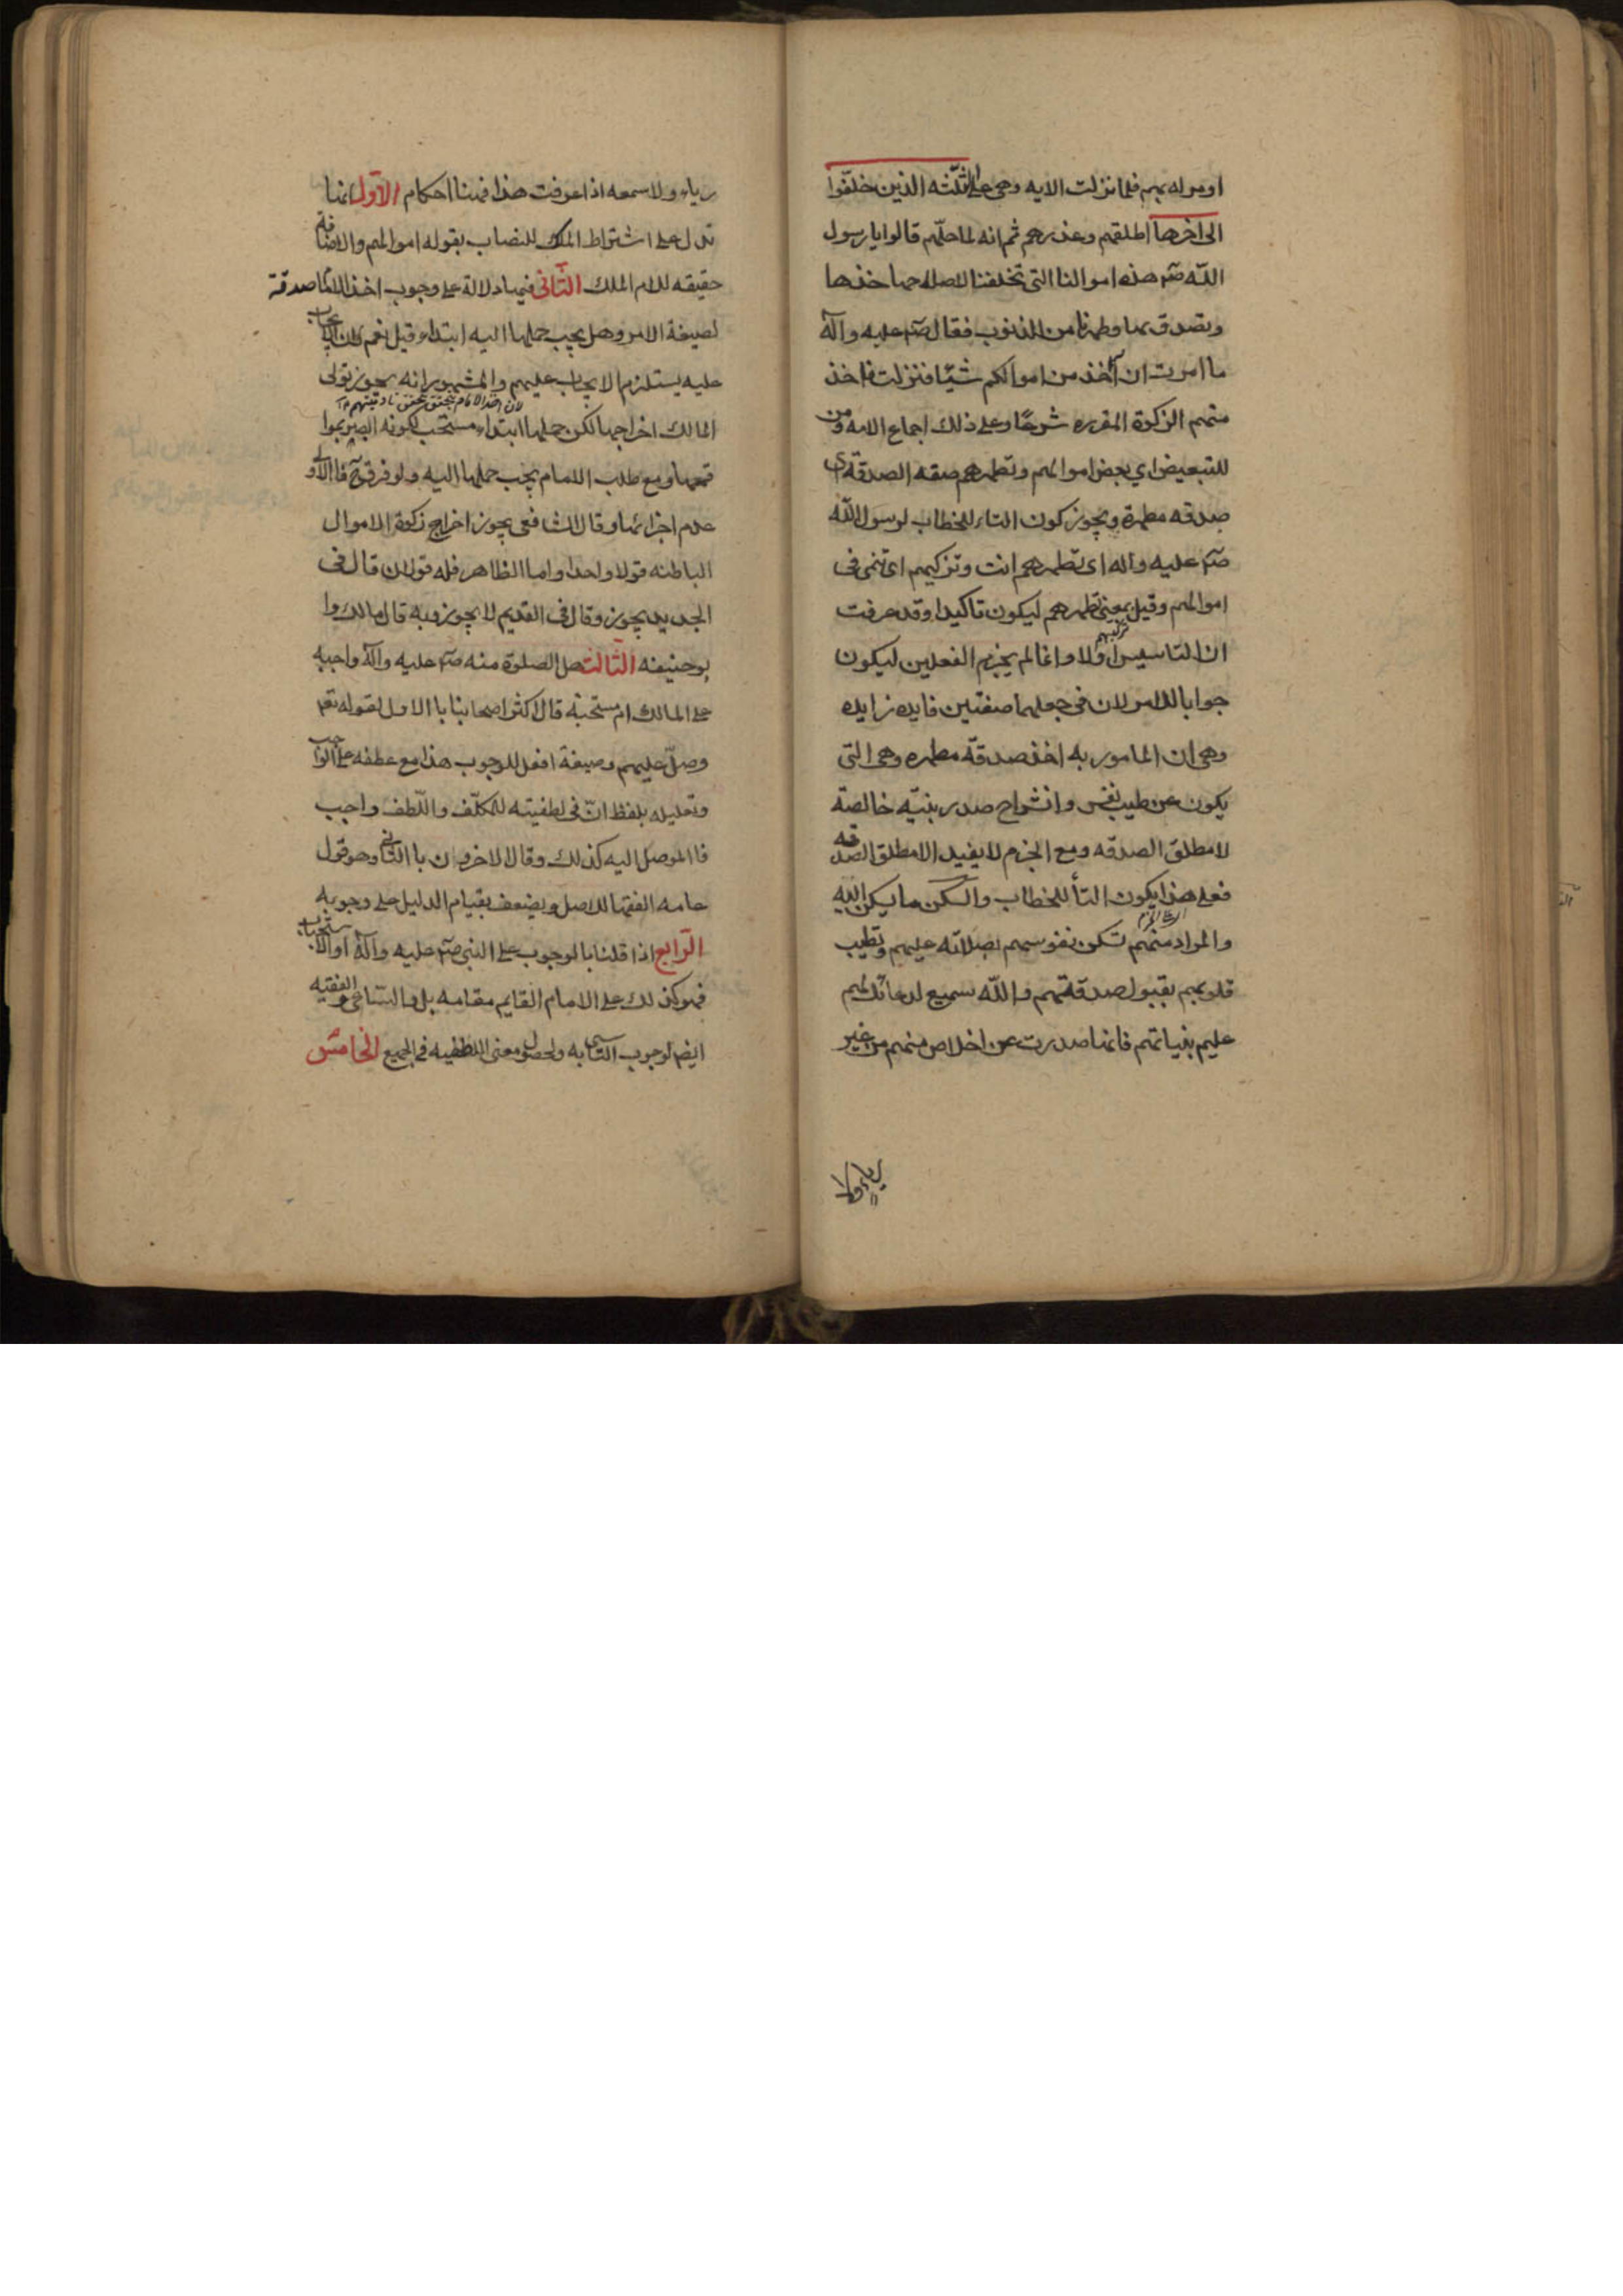 او مواله بهم فلما نزلت الايه وهى على الثلثه الذين خلفوا
الى اخرها اطلقهم وعذرهم ثم انه لما حلهم قالوا يا رسول
الله صم هذه اموالنا التى تخلفنا لاصلها خذها
وتصدق بها وطهرنا من الذنوب فقال صم عليه وآله
ما امرت ان آخذ من اموالكم شيئا فنزلت فاخذ
منهم الزكوة المقرره شرعا وعلى ذلك اجماع الامه و من
للتبعيض اي بعض اموالهم وتطهرهم صفه الصدقة اى
صدقه مطهرة ويجوز كون التاء للخطاب لرسول الله
صم عليه واله اى تطهرهم انت وتزكيهم اى تنمى فى
اموالهم وقيل بمعنى تطهرهم ليكون تاكيدا وقد عرفت
ان التاسيس اولا وانما لم يجزم الفعلين ليكون
جوابا للامر لان فى جعلهما صفتين فايده زايده
وهى ان المامور به اخذ صدقة مطهره وهى التى
يكون عن طيب نفس وانشراح صدر بنيه خالصة
لامطلق الصدقه ومع الجزم لا يفيد الامطلق الصدقه
فعلى هذا يكون التأ للخطاب والسكن ما يسكن اليه
والمراد منهم تسكن نفوسهم بصلاته عليهم وتطيب
قلوبهم بقبول صدقتهم والله سميع لدعائك لهم
عليم بنياتهم فانها صدرت عن اخلاص منهم من غير
رياء ولا
رياء ولا سمعه اذا عرفت هذا فهنا احكام الاول انها
تدل على اشتراط الملك للنصاب بقوله اموالهم والاضافة
حقيقه للام الملك الثانى فيها دلالة على وجوب اخذ الامام صدقة
لصيغة الامر وهل يجب حملها اليه ابتداء قيل نعم لان ايجاب
عليه يستلزم الايجاب عليهم والمشهور انه يجوز تولى
المالك اخراجها لكن حملها ابتداء مستحب لكونه ابصر بموا
قعها ومع طلب الامام يجب حملها اليه ولو فرق ح فالاولى
عدم اجزائها وقال الشافعى يجوز اخراج زكوة الاموال
الباطنه قولا واحدا واما الظاهر فله قولان قال فى
الجديد يجوز وقال فى القديم لا يجوز وبه قال مالك وا
بوحنيفه الثالث هل الصلوة منه صم عليه وآله واجبه
على المالك ام مستحبة قال اكثر اصحابنا با الاول لقوله تعم
وصل عليهم وصيغة افعل للوجوب هذا مع عطفه على الواجب
وتعليله بلفظ ان فى لطفيته للمكلف واللطف واجب
فا الموصل اليه كذلك وقال الاخرون با الثانى وهو قول
عامه الفقها للاصل ويضعف بقيام الدليل على وجوبه
الرابع اذا قلنا بالوجوب على النبى صم عليه وآله او الاستحباب
فهو كذلك على الامام القايم مقامه بل والساعى والفقيه
ايضا لوجوب التاسى به ولحصول معنى اللطفيه فى الجميع الخامس